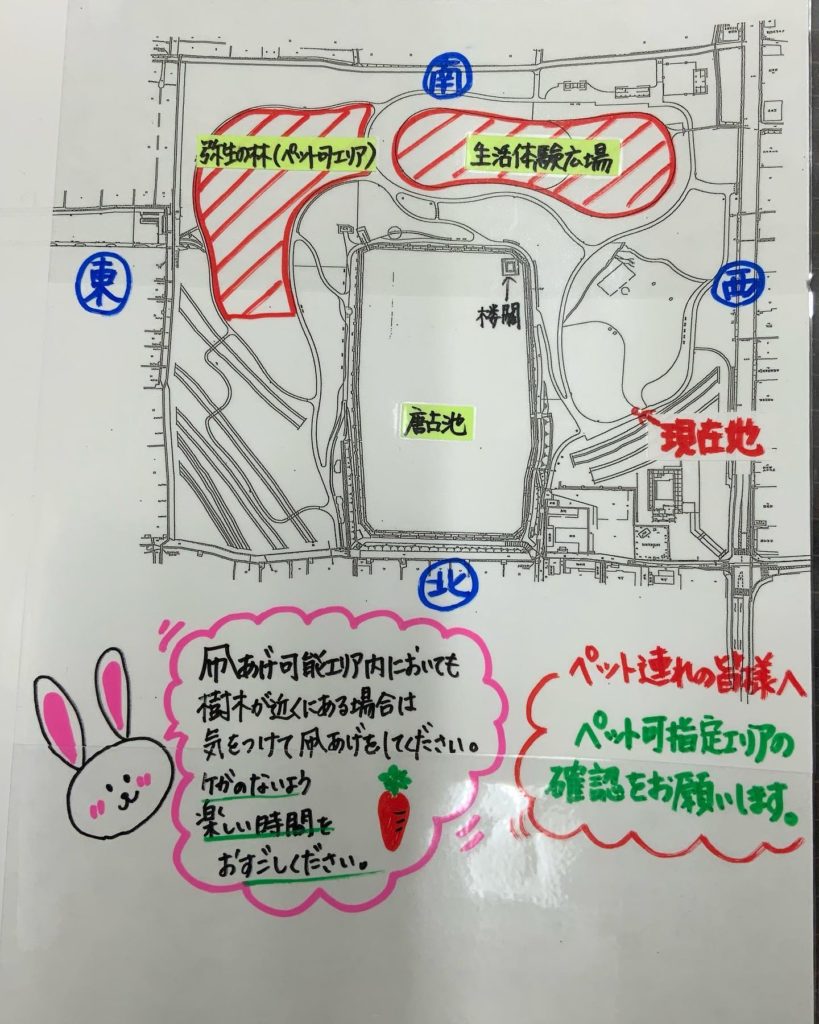 南
弥生の林(ペット可エリア)
生活体験広場
東
西
楼閣
唐古池
現在地
北
凧あげ可能エリア内においても
樹木が近くにある場合は
気をつけて凧あげをしてください。
ケガのないよう
楽しい時間を
おすごしください。
ペット連れの皆様へ
ペット可指定エリアの
確認をお願いします。